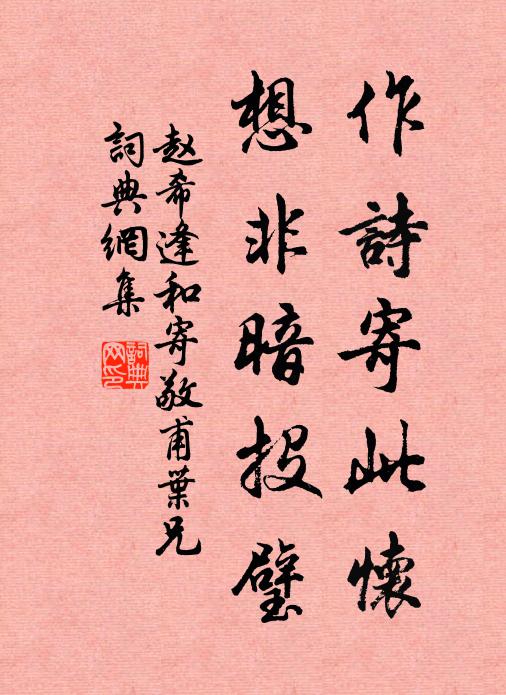 作詩寄此懷
想非暗投璧
赵希逢和寄敬甫葉兄
詞典網集
詞典網印